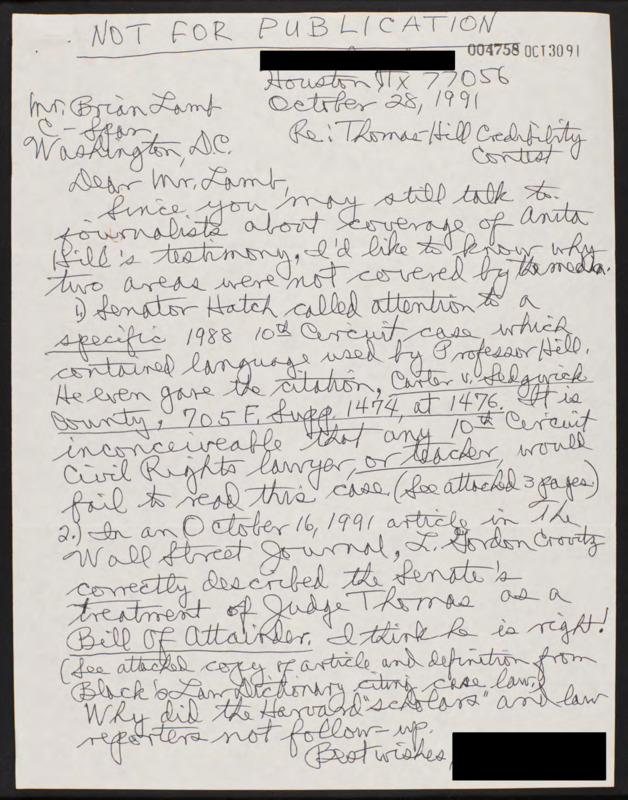 NOT FOR PUBLICATION
004758 OCT 30 91
Houston, TX 77056
October 28, 1991
Mr. Brian Lamb
C-Span
Washington, D.C.
Re: Thomas-Hill Credibility
Contest
Dear Mr. Lamb,
Since you may still talk to
journalists about coverage of Anita
Hill's testimony, I'd like to know why
two areas were not covered by the media.
1) Senator Hatch called attention to a
specific 1988 10th Circuit case which
contained language used by Professor Hill.
He even gave the citation, Carter v. Sedgwick
County, 705 F. Supp. 1474, at 1476. It is
inconceiveable that any 10th Circuit
Civil Rights lawyer, or teacher, would
fail to read this case (See attached 3 pages)
2.) In an October 16, 1991 article in The
Wall Street Journal, L. Gordon Crovitz
correctly described the Senate's
treatment of Judge Thomas as a
Bill Of Attainder. I think he is right!
(See attached copy of article and definition from
Black's Law Dictionary citing case law.)
Why did the Harvard "scholars" and law
reporters not follow-up.
Best wishes,